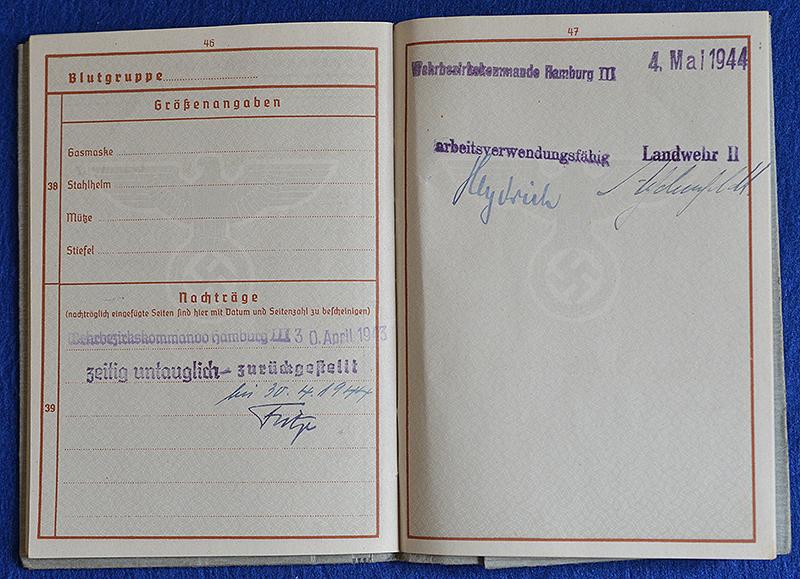 46
Blutgruppe
Größenangaben
38
Gasmaske
Stahlhelm
Mütze
Stiefel
Nachträge
(nachträglich eingefügte Seiten sind hier mit Datum und Seitenzahl zu bescheinigen)
39
Wehrbezirkskommando Hamburg III 30. April 1943
zeitig untauglich - zurückgestellt
bis 30.4.1944
Fritze
47
Wehrbezirkskommando Hamburg III 4. Mai 1944
arbeitsverwendungsfähig Landwehr II
Heydrich